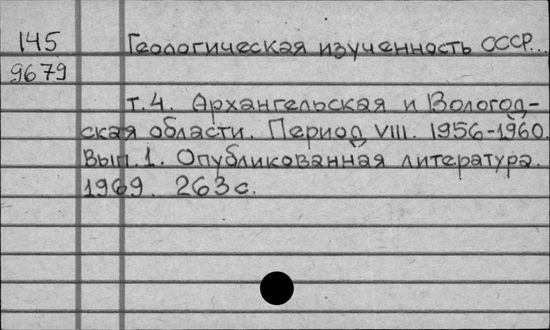 145 Геологическая изученность СССР...
9679
т. 4. Архангельская и Вологод-
ская области. Период VIII. 1956-1960.
Вып. 1. Опубликованная литература.
1969. 263 с.